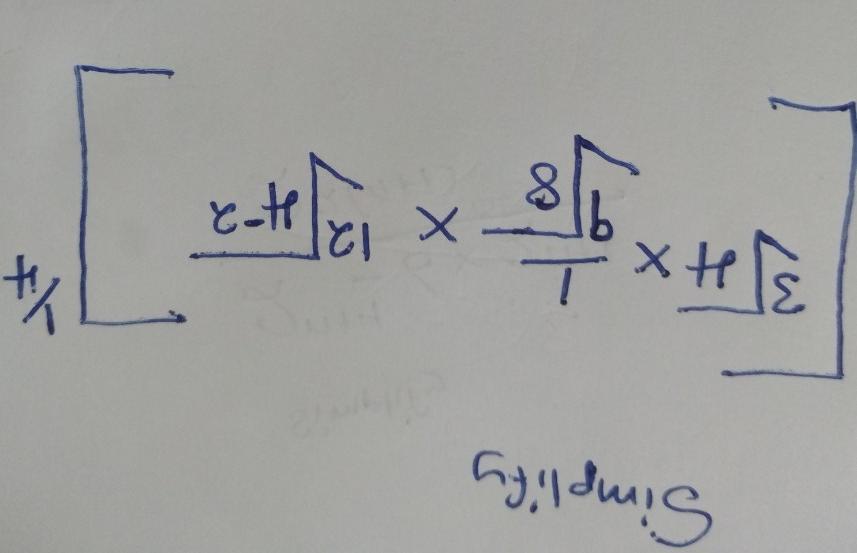 Simplify
[∛4 × 1/⁹√8 × ¹²√4-2]^1/4